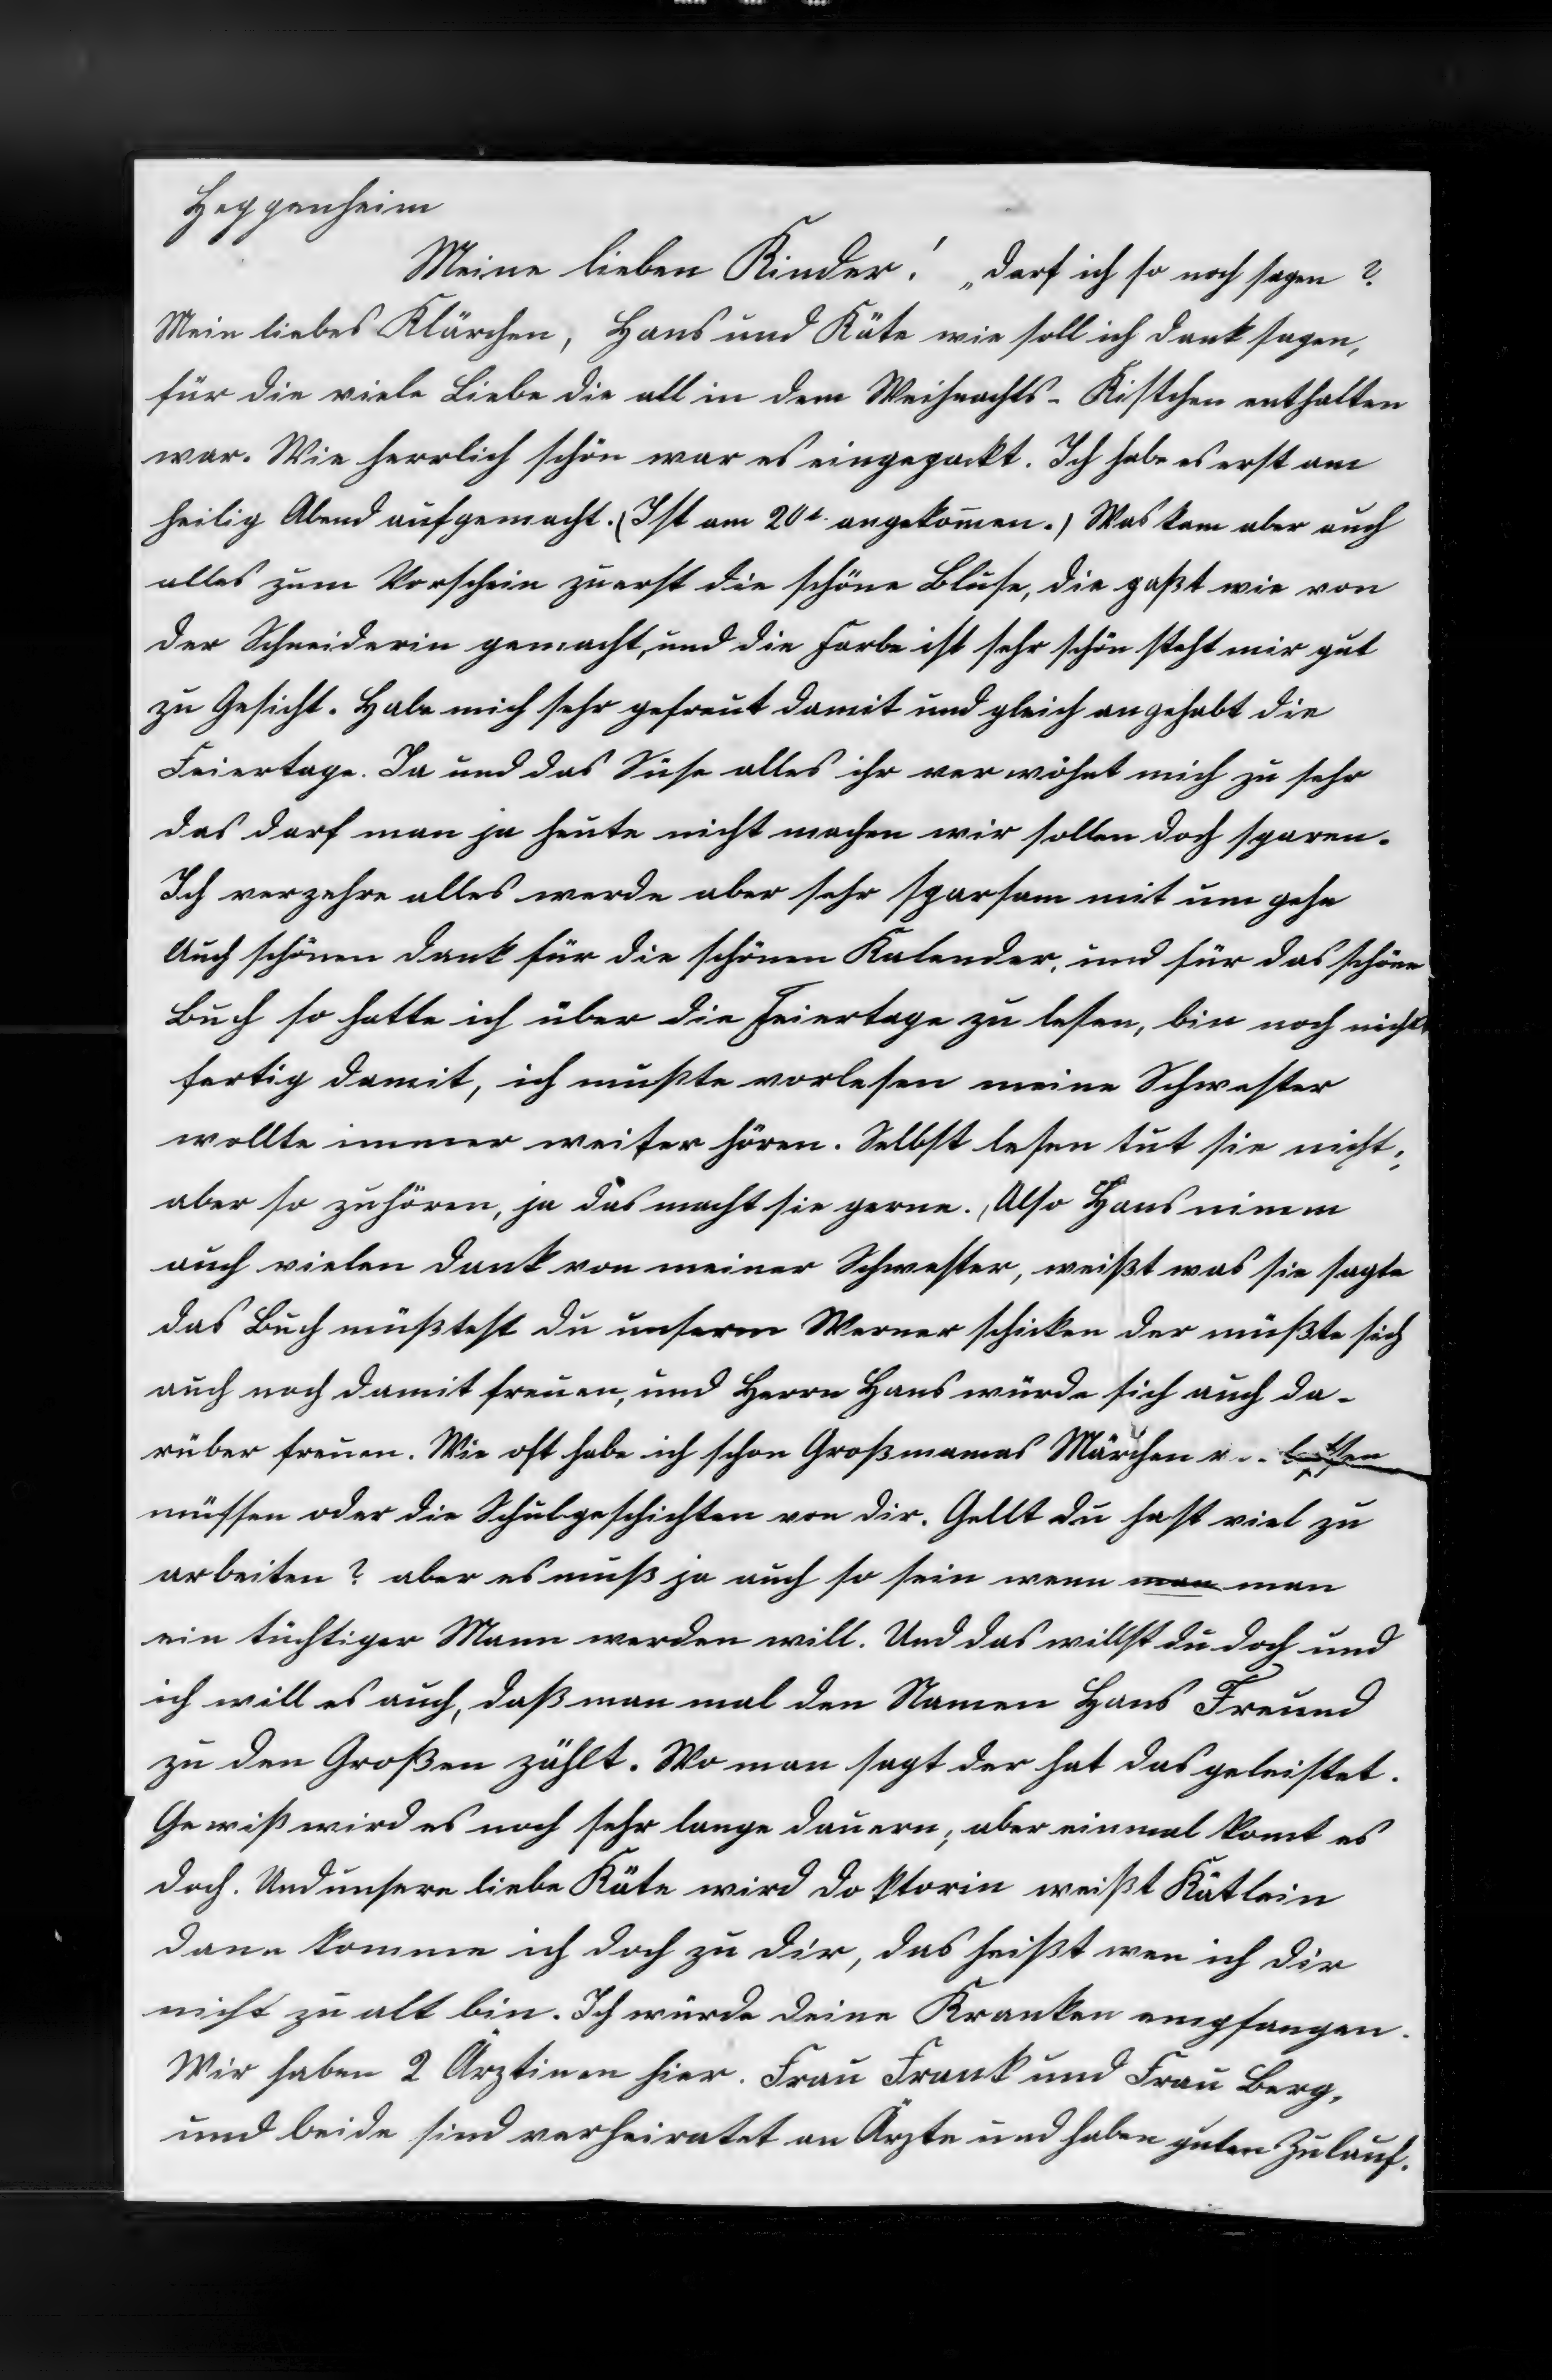 Heppenheim
Meine lieben Kinder! „darf ich so noch sagen?
Mein liebes Klärchen, Hans und Käte wie soll ich dank sagen,
für die viele Liebe die all in dem Weihnachts-Kistchen enthalten
war. Wie herrlich schön war es eingepackt. Ich habe es erst am
heilig Abend aufgemacht. (Ist am 20t. angekom̄en.) Was kam aber auch
alles zum Vorschein zuerst die schöne Bluse, die paßt wie von
der Schneiderin gemacht, und die Farbe ist sehr schön steht mir gut
zu Gesicht. Habe mich sehr gefreut damit und gleich angehabt die
Feiertage. Ja und das Süse alles ihr verwöhnt mich zu sehr
das darf man ja heute nicht machen wir sollen doch sparen.
Ich verzehre alles werde aber sehr sparsam mit um gehe
Auch schönen dank für die schönen Kalender, und für das schöne
Buch so hatte ich über die Feiertage zu lesen, bin noch nicht
fertig damit, ich mußte vorlesen meine Schwester
wollte immer weiter hören. Selbst lesen tut sie nicht;
aber so zuhören, ja das macht sie gerne. Also Hans nimm
auch vielen dank von meiner Schwester, weißt was sie sagte
das Buch müßtest du unserm Werner schicken der müßte sich
auch noch damit freuen, und Herrn Hans würde sich auch da-
rüber freuen. Wie oft habe ich schon Großmamas Märchen
müssen oder die Schulgeschichten von dir. Gellt du hast viel zu
arbeiten? aber es muß ja auch so sein wenn man man
ein tüchtiger Mann werden will. Und das willst du doch und
ich will es auch, daß man mal den Namen Hans Freund
zu den Großen zählt. Wo man sagt der hat das geleistet.
Gewiß wird es noch sehr lange dauern, aber einmal komt es
doch. Und unsere liebe Käte wird doktorin weißt Kätlein
dann komme ich doch zu dir, das heißt wen ich dir
nicht zu alt bin. Ich würde deine Kranken empfangen.
Wir haben 2 Ärztinen hier. Frau Frank und Frau Berg,
und beide sind verheiratet an Ärzte und haben guten Zulauf.